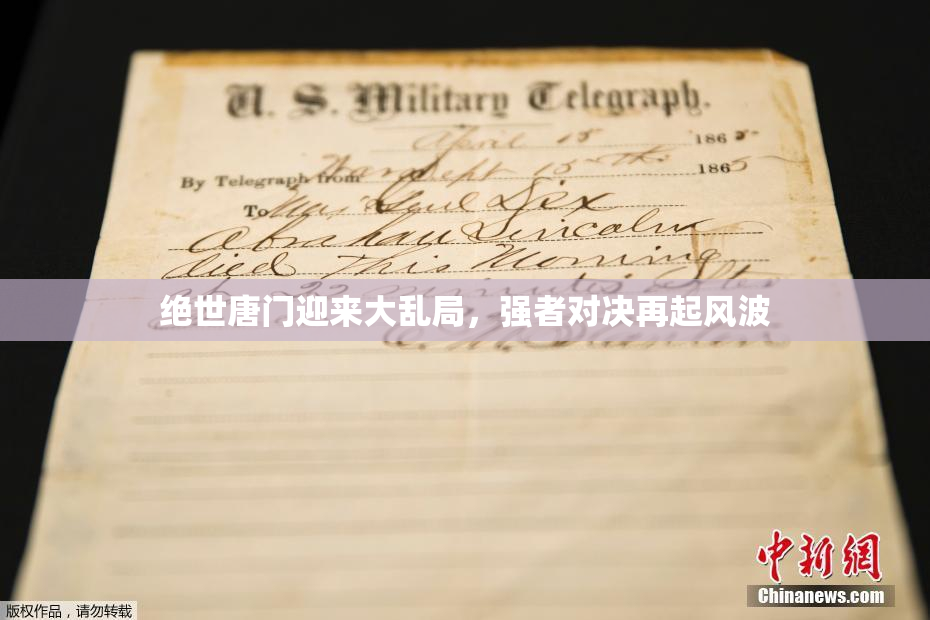 U. S. Military Telegraph.
April 15 1865
By Telegraph from War Dept 15th 1865
To Maj Genl Dix
Abraham Lincoln
died This Morning
at 22 minutes after
绝世唐门迎来大乱局，强者对决再起风波
E. M. Stanton
中新网
Chinanews.com
版权作品，请勿转载